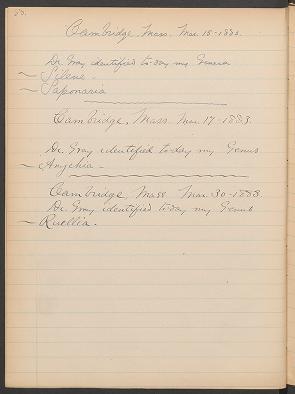 58.
Cambridge, Mass. Mar. 15-1883.
Dr. Gray identified to-day my Genera
~ Silene.
~ Saponaria
Cambridge, Mass. Mar. 17-1883.
Dr. Gray identified to-day my Genus
~ Anychia.
Cambridge, Mass. Mar. 30-1883.
Dr. Gray identified to-day my Genus
~ Ruellia.